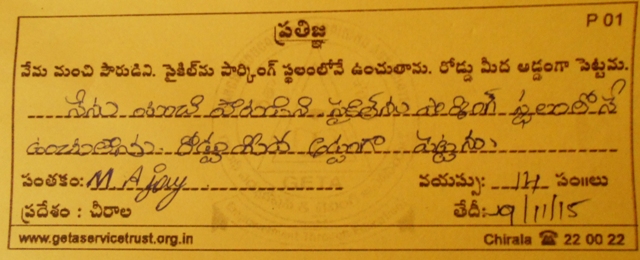 P 01
ప్రతిజ్ఞ
నేను మంచి పౌరుడిని. సైకిల్‌ను పార్కింగ్ స్థలంలోనే ఉంచుతాను. రోడ్డు మీద అడ్డంగా పెట్టను.
నేను మంచి పౌరుడిని సైకిల్‌ను పార్కింగ్ స్థలంలోనే
ఉంచుతాను. రోడ్డు మీద అడ్డంగా పెట్టను.
సంతకం: M Ajay వయస్సు: 14 సం॥లు
ప్రదేశం : చీరాల తేదీ: 9/11/15
www.getaservicetrust.org.in Chirala ☎ 22 00 22